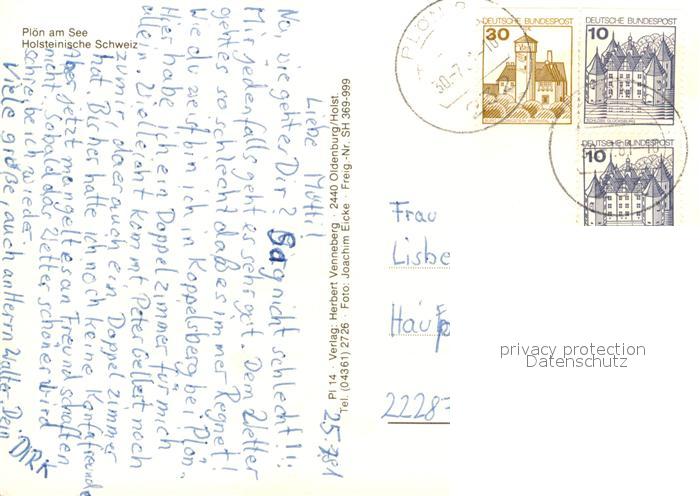 Plön am See
Holsteinische Schweiz
Liebe Mutti!
Na, wie gehter Dir? Ga gnicht schlecht!!!
Mir jedenfalls geht es sehr gut. Dem Wetter
geht es so schlecht daß es immer Regnet!
Wie du weist bin ich in Koppelsberg bei Plön.
Hier habe ich ein Doppelzimmer für mich
allein. Vielleicht kommt Peter Gellert noch
zu mir da er auch ein Doppelzimmer
hat. Bisher hatte ich noch keine Kontafreunde
Aber jetzt mangelt es an Freundschaften
nicht. Sobald das Wetter schöner wird
schreibe ich wieder.
Viele grüße, auch an Herrn Walter Dein
DIRK
25.7.81
Pl 14 · Verlag: Herbert Venneberg · 2440 Oldenburg/Holst.
Tel. (04361) 2726 · Foto: Joachim Eicke · Freig.-Nr. SH 369-999
30 DEUTSCHE BUNDESPOST
DEUTSCHE BUNDESPOST
10
SCHLOSS GLÜCKSBURG
DEUTSCHE BUNDESPOST
10
PLÖN
30.-7.
Frau
Lisbe
Hau
2228-
privacy protection
Datenschutz